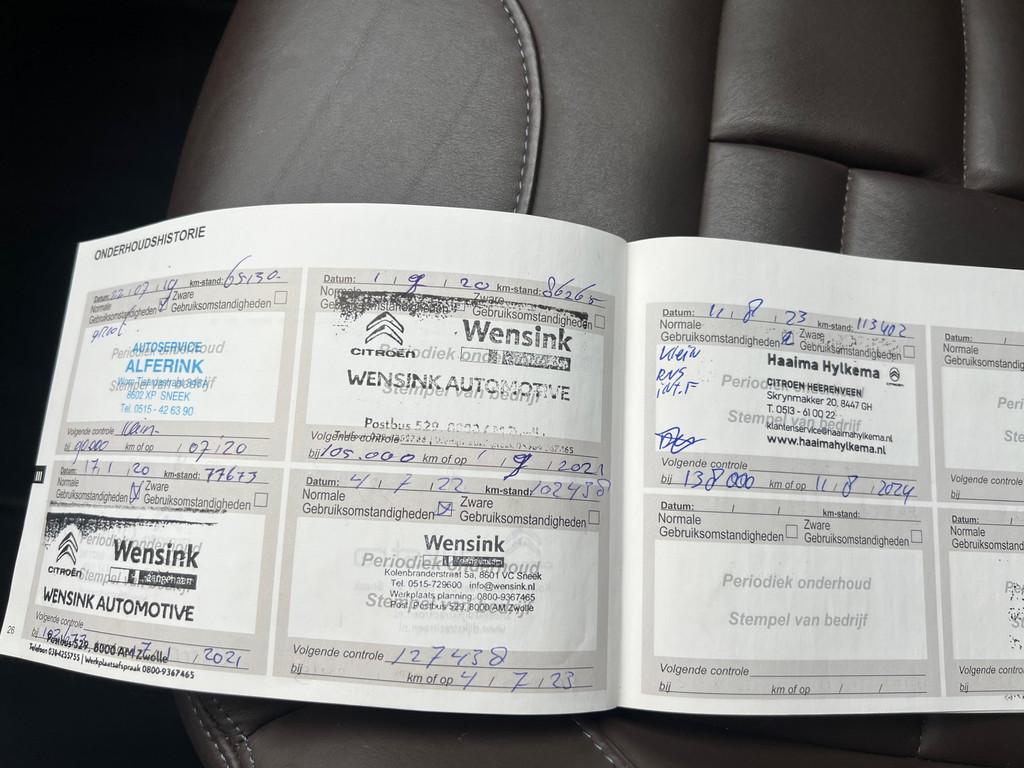 ONDERHOUDSHISTORIE
Datum: 22 , 07 , 19 km-stand: 65130-
Normale Zware
Gebruiksomstandigheden Gebruiksomstandigheden
groot
Periodiek onderhoud
AUTOSERVICE
ALFERINK
Stempel van bedrijf
8602 XP SNEEK
Tel. 0515 - 42 63 90
Volgende controle klein-
bij 90.000 km of op , 07 , 20
Datum: 1 , 9 , 20 km-stand: 86265
Normale Zware
Gebruiksomstandigheden Gebruiksomstandigheden
CITROËN
Wensink
Periodiek onderhoud
WENSINK AUTOMOTIVE
Stempel van bedrijf
Postbus 529, 8000 AM Zwolle
Volgende controle
bij 105.000 km of op 1 , 9 , 2021
Datum: 17 , 1 , 20 km-stand: 77673
Normale Zware
Gebruiksomstandigheden Gebruiksomstandigheden
Periodiek onderhoud
CITROËN
Wensink
Stempel van bedrijf
WENSINK AUTOMOTIVE
Volgende controle
bij 102673 km of op 17 , 1 , 2021
Postbus 529, 8000 AM Zwolle
Telefoon 038-4255755 | Werkplaatsafspraak 0800-9367465
26
III
Datum: 4 , 7 , 22 km-stand: 102438
Normale Zware
Gebruiksomstandigheden Gebruiksomstandigheden
Wensink
Periodiek onderhoud
Kolenbranderstraat 5a, 8601 VC Sneek
Tel. 0515-729600 info@wensink.nl
Werkplaats planning: 0800-9367465
Stempel van bedrijf
Post: Postbus 529, 8000 AM Zwolle
Volgende controle 127438
bij km of op 4 , 7 , 23
Datum: 11 , 8 , 23 km-stand: 113402
Normale Zware
Gebruiksomstandigheden Gebruiksomstandigheden
klein
RVS
int.F
Haaima Hylkema
Periodiek onderhoud
CITROEN HEERENVEEN
Skrynmakker 20, 8447 GH
T. 0513 - 61 00 22
Stempel van bedrijf
klantenservice@haaimahylkema.nl
www.haaimahylkema.nl
Volgende controle
bij 138000 km of op 11 , 8 , 2024
Datum: / / km-stand:
Normale Zware
Gebruiksomstandigheden Gebruiksomstandigheden
Periodiek onderhoud
Stempel van bedrijf
Volgende controle
bij km of op / /
Datum: /
Normale
Gebruiksomstandigheden
Volgende controle
bij
Datum:
Normale
Gebruiksomstand
Volgende contro
bij